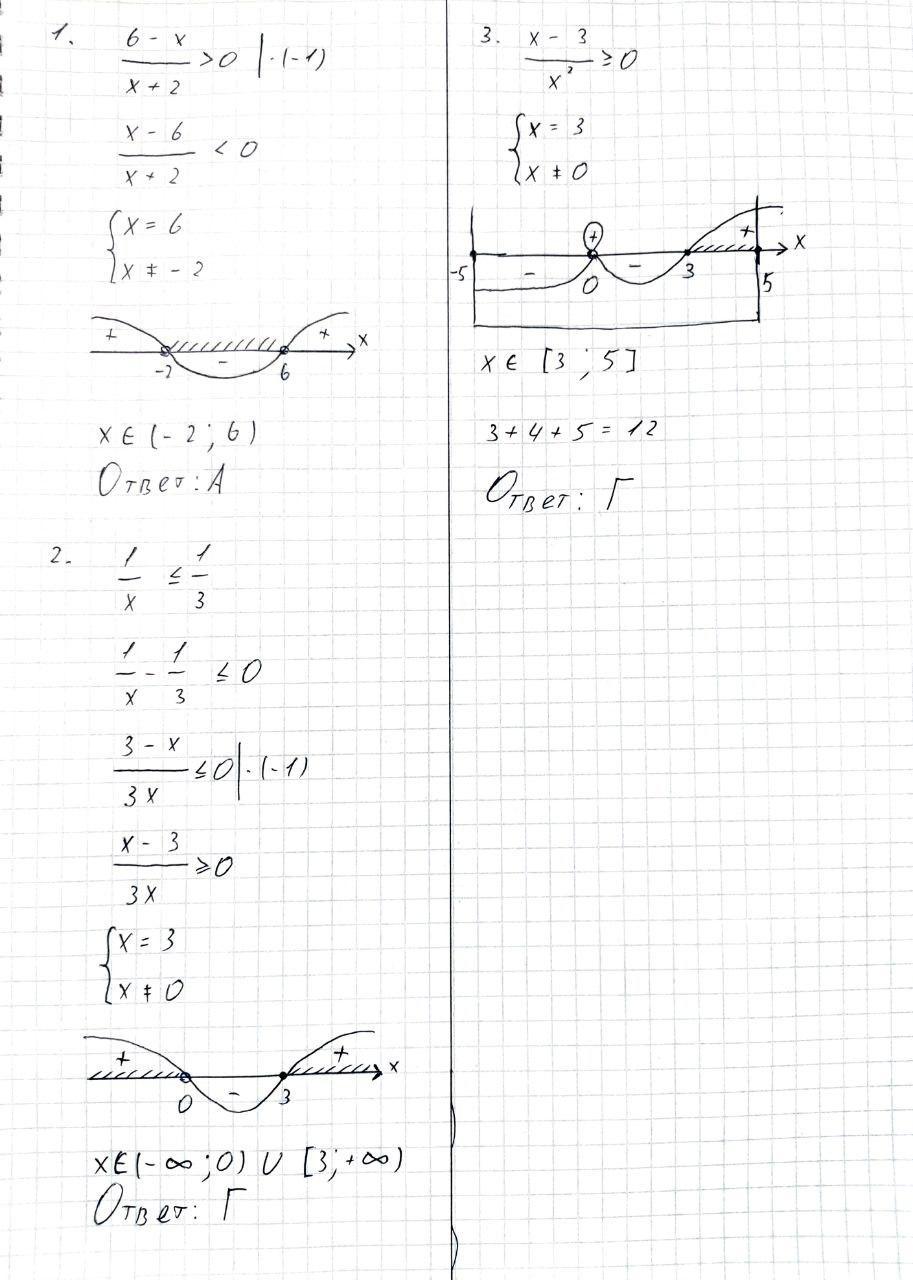 1. (6 - x)/(x + 2) > 0 | · (-1)
(x - 6)/(x + 2) < 0
{ x = 6
x ≠ - 2
+ - + x
-2 6
x ∈ (- 2 ; 6)
Ответ: А
2. 1/x ≤ 1/3
1/x - 1/3 ≤ 0
(3 - x)/(3x) ≤ 0 | · (-1)
(x - 3)/(3x) ≥ 0
{ x = 3
x ≠ 0
+ - + x
0 3
x ∈ (- ∞ ; 0) ∪ [3 ; + ∞)
Ответ: Г
3. (x - 3)/x² ≥ 0
{ x = 3
x ≠ 0
- + - + x
-5 0 3 5
x ∈ [3 ; 5]
3 + 4 + 5 = 12
Ответ: Г